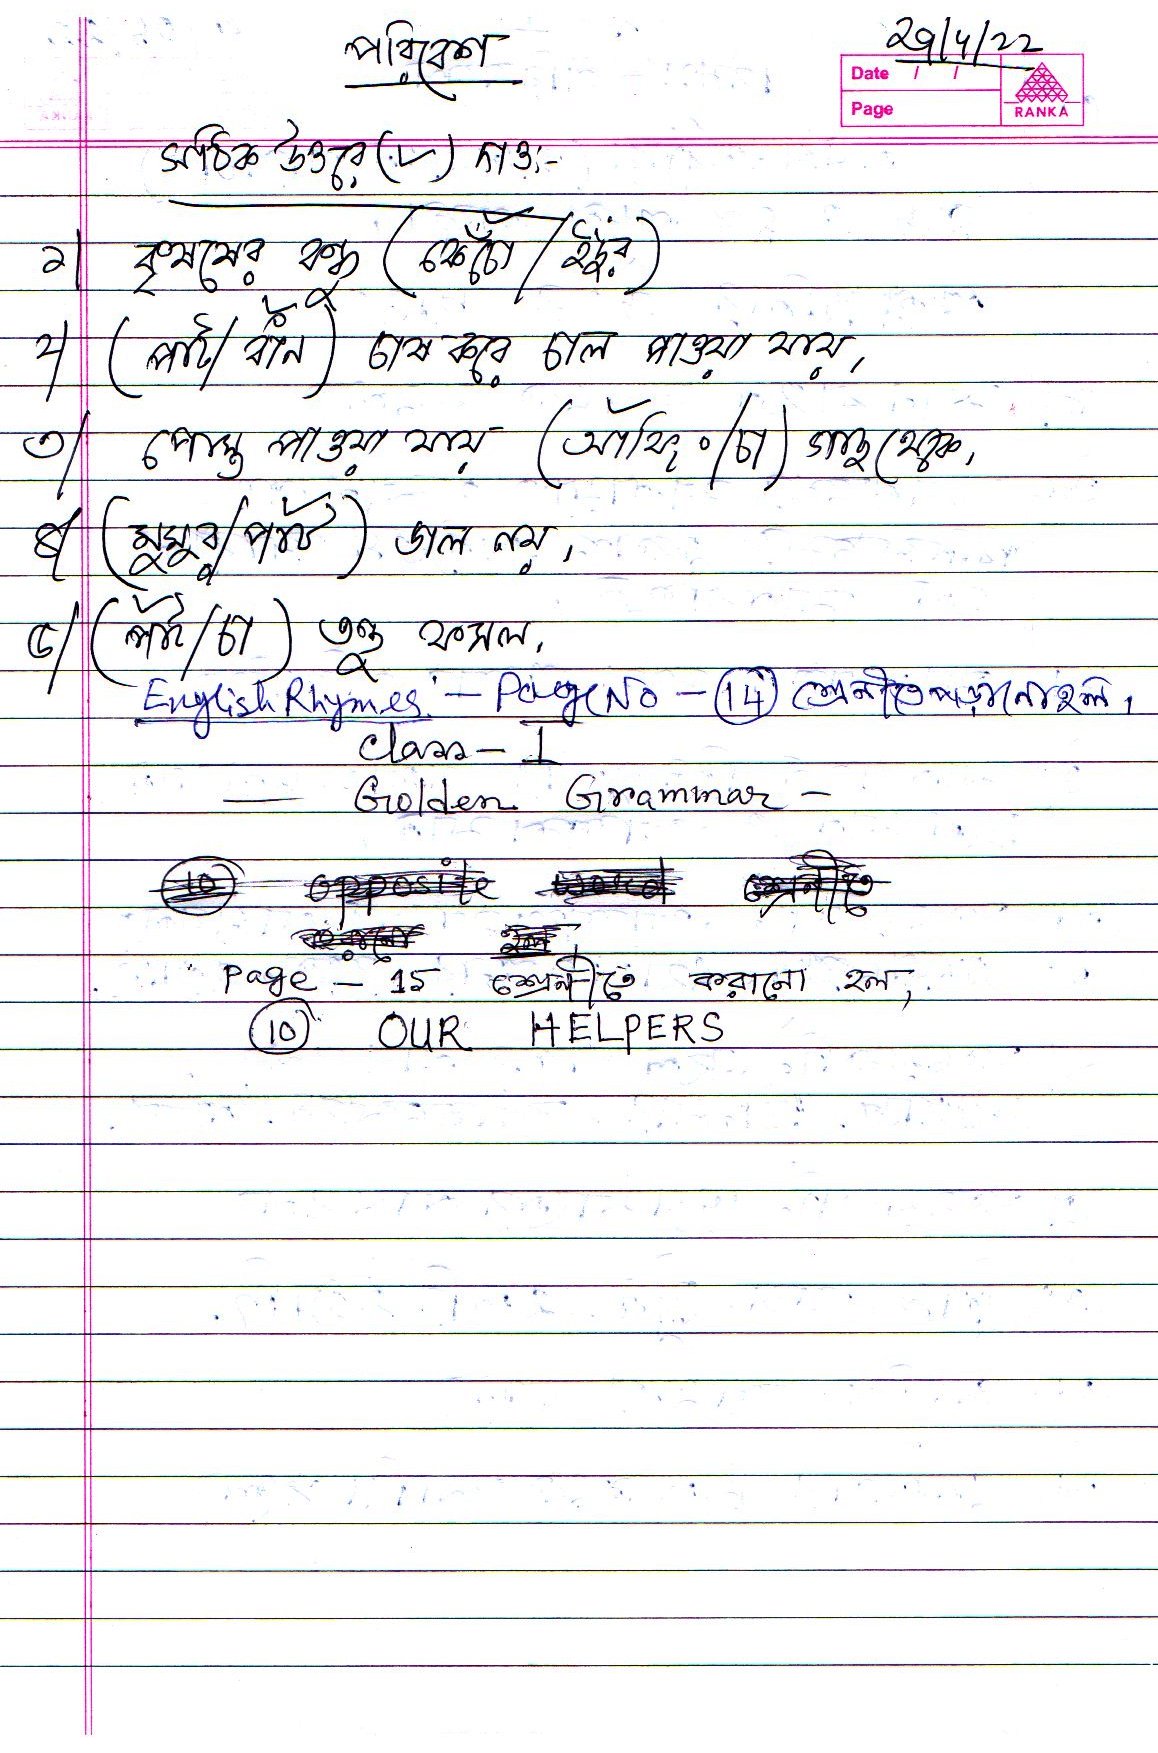 পরিবেশ
২৭/৪/২২
Date / /
Page
RANKA
সঠিক উত্তরে (✓) দাও:-
১। কৃষকের বন্ধু (কেঁচো ✓/ইঁদুর)
২। (পাট/ধান ✓) চাষ করে চাল পাওয়া যায়।
৩। পোস্ত পাওয়া যায় (আফিং ✓/চা) গাছ থেকে।
৪। (মুসুর/পাট ✓) ডাল নয়।
৫। (পাট ✓/চা) তন্তু ফসল।
English Rhymes :- Page No - 14 শ্রেনীতে পড়ানো হল।
Class - I
— Golden Grammar -
10 opposite word শ্রেনীতে
করানো হল
Page - 15 শ্রেনীতে করানো হল,
10 OUR HELPERS